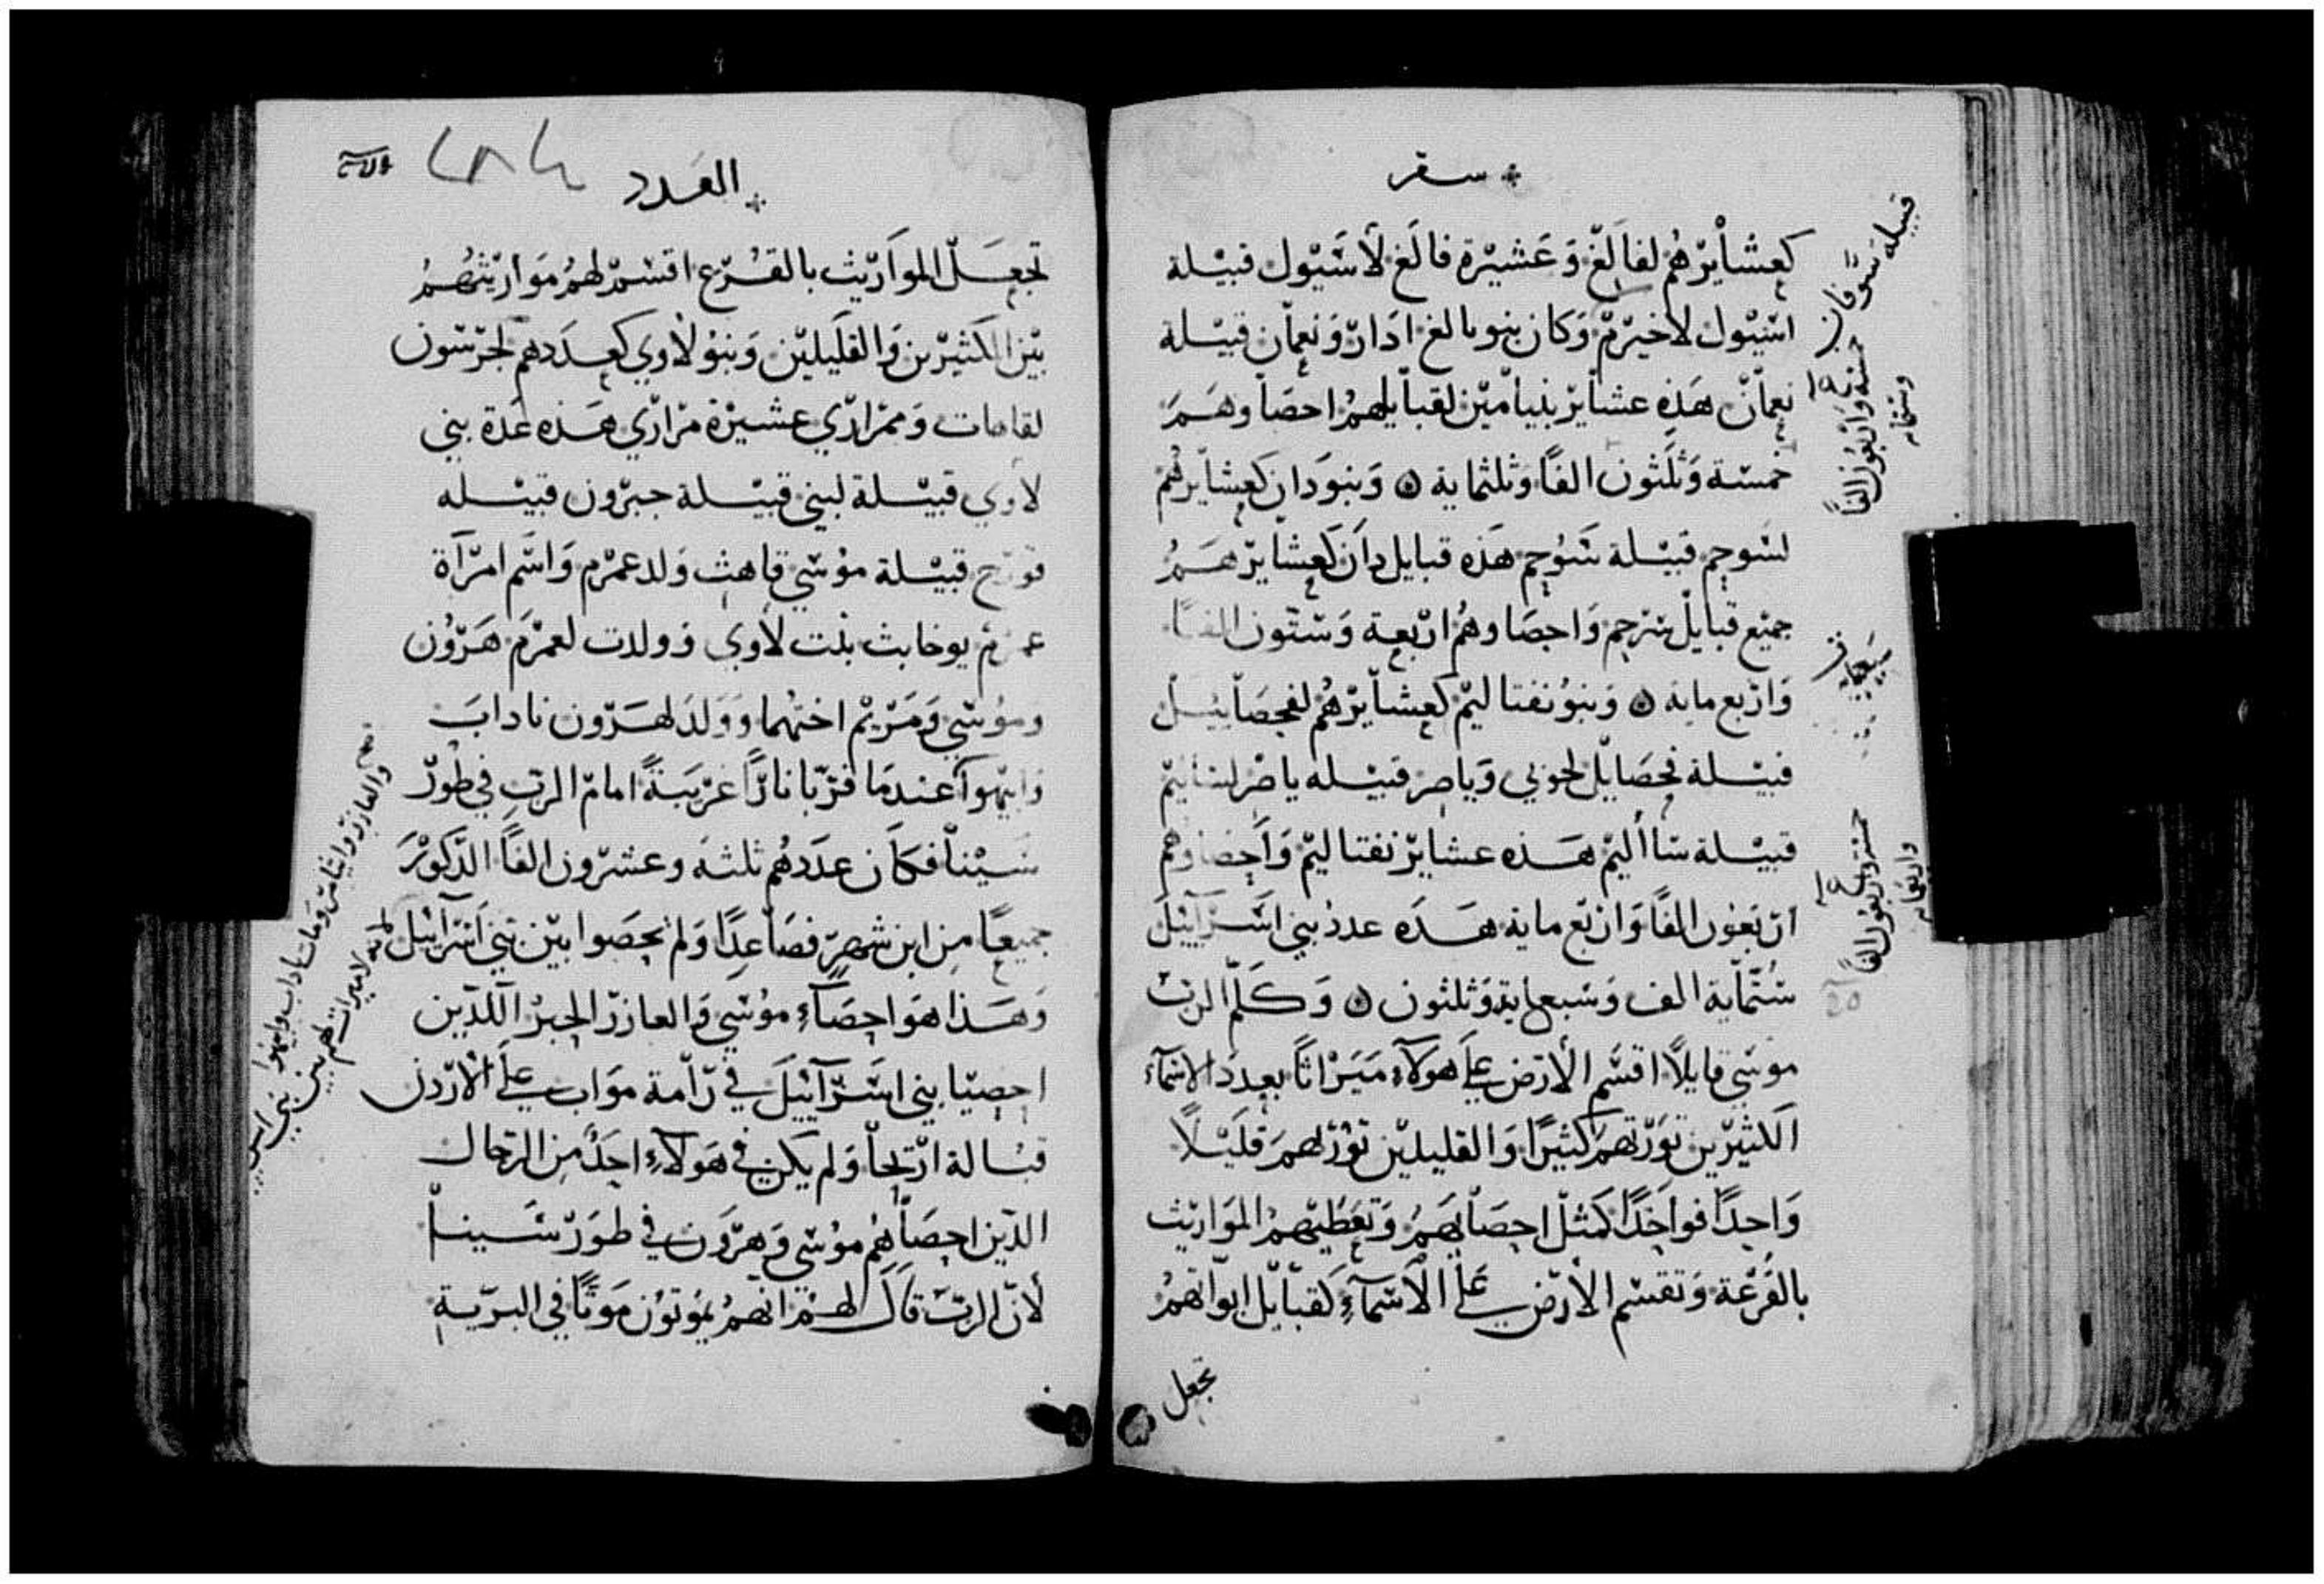 سفر
كعشايرهم لفالغ وعشيرة فالغ لاشيول قبيلة
اشيول لاخيرم وكان بنو بالغ ادار ونعمان قبيلة
نعمان هذه عشاير بنيامين لقبايلهم احصاوهم
خمسة وثلثون الفا وثلثماية ۞ وبنو دان كعشايرهم
لشوحم قبيلة شوحم هذه قبايل دان كعشايرهم
جميع قبايل شرحم واحصاوهم اربعة وستون الفا
واربع ماية ۞ وبنو نفتاليم كعشايرهم لفحصاييل
قبيلة فحصايل لجوني وياصر قبيله ياصر
قبيلة ساأليم هذه عشاير نفتاليم واحصاوهم
اربعون الفا واربع ماية هذه عدد بني اسراييل
ستماية الف وسبعماية وثلثون ۞ وكلم الرب
موسى قايلا اقسم الارض على هولاء ميراثا بعدد الاسماء
الكثيرين تورثهم كثيرا والقليلين تورثهم قليلا
واحدا فواحدا كمثل احصايهم وتعطيهم المواريث
بالقرعة وتقسم الارض على الاسماء لقبايل ابواتهم
تجعل
قبيلة
خمسة واربعون الفا
وستماية
خمسة واربعون الفا
واربعماية
العدد
٢٨٤
تجعل المواريث بالقرع اقسم لهم مواريثهم
بين الكثيرين والقليلين وبنو لاوي كعددهم لجرشون
لقاهات وممراري عشيرة مراري هذه عدة بني
لاوي قبيلة لبني قبيلة حبرون قبيله
قورح قبيلة موسي قاهث ولد عمرم واسم امرآة
عمرم يوخابث بنت لاوي وولدت لعمرم هرون
وموسي ومريم اختهما وولد لهرون ناداب
وابيهوا عندما قربا نارا غريبة امام الرب في طور
سينا فكان عددهم ثلثه وعشرون الفا الذكور
جميعا من ابن شهر فصاعدا ولم يحصوا بين بني اسراييل
وهذا هو احصاء موسي والعازر الحبر اللذين
احصيا بني اسراييل في رامة مواب على الاردن
قبالة اريحا ولم يكن في هولاء احد من الرجال
الذين احصاهم موسي وهرون في طور سينا
لان الرب قال لهم انهم يموتون موتا في البرية
والعازر وايثامر ومات ناداب وابيهوا
لانه لا ميراث لهم بين بني